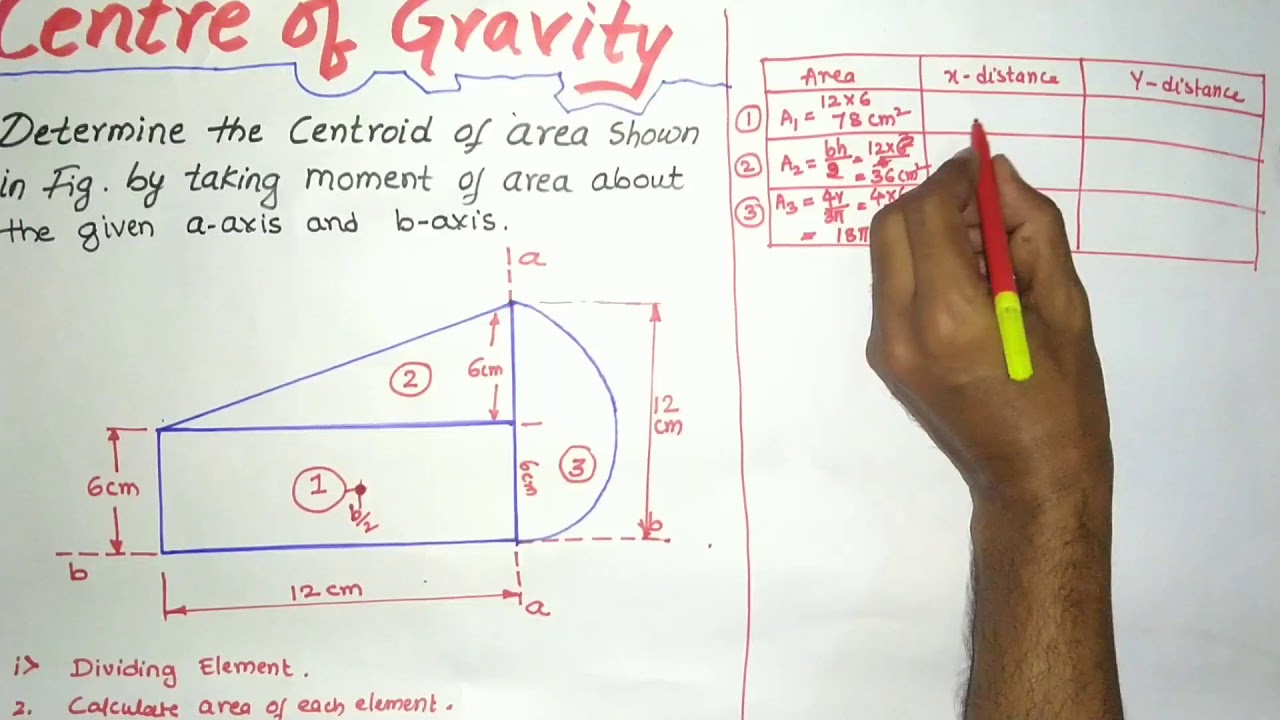 Centre of Gravity
Determine the Centroid of area shown
in Fig. by taking moment of area about
the given a-axis and b-axis.
a
6cm
2
12
cm
6cm
1
b/2
6cm
3
b
b
12 cm
a
i> Dividing Element.
2. Calculate area of each element.
Area x-distance Y-distance
1 A1 = 12×6
78 cm²
2 A2 = bh/2 = 12×6
= 36cm²
3 A3 = 4r/3π =
= 18π